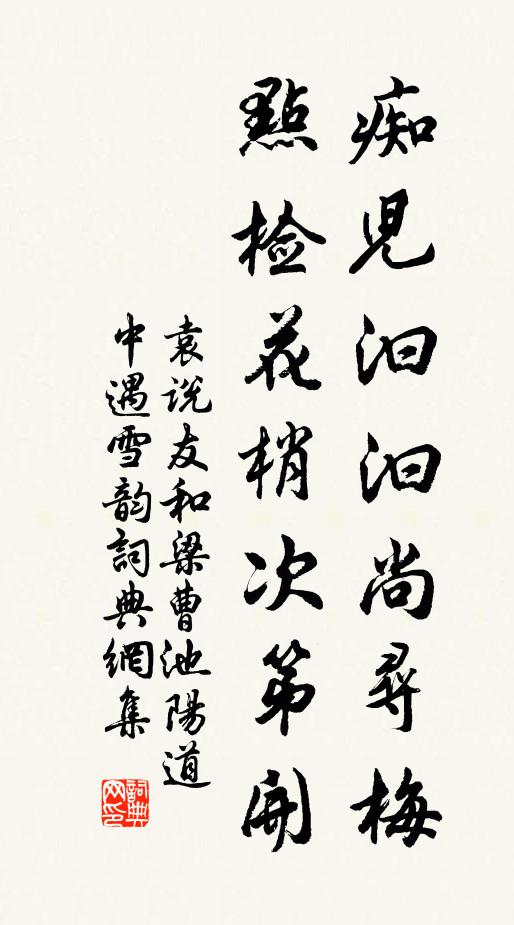 痴児汩汩尚尋梅
點檢花梢次第開
袁説友和梁曹池陽道
中遇雪韵詞典網集
詞典
网印